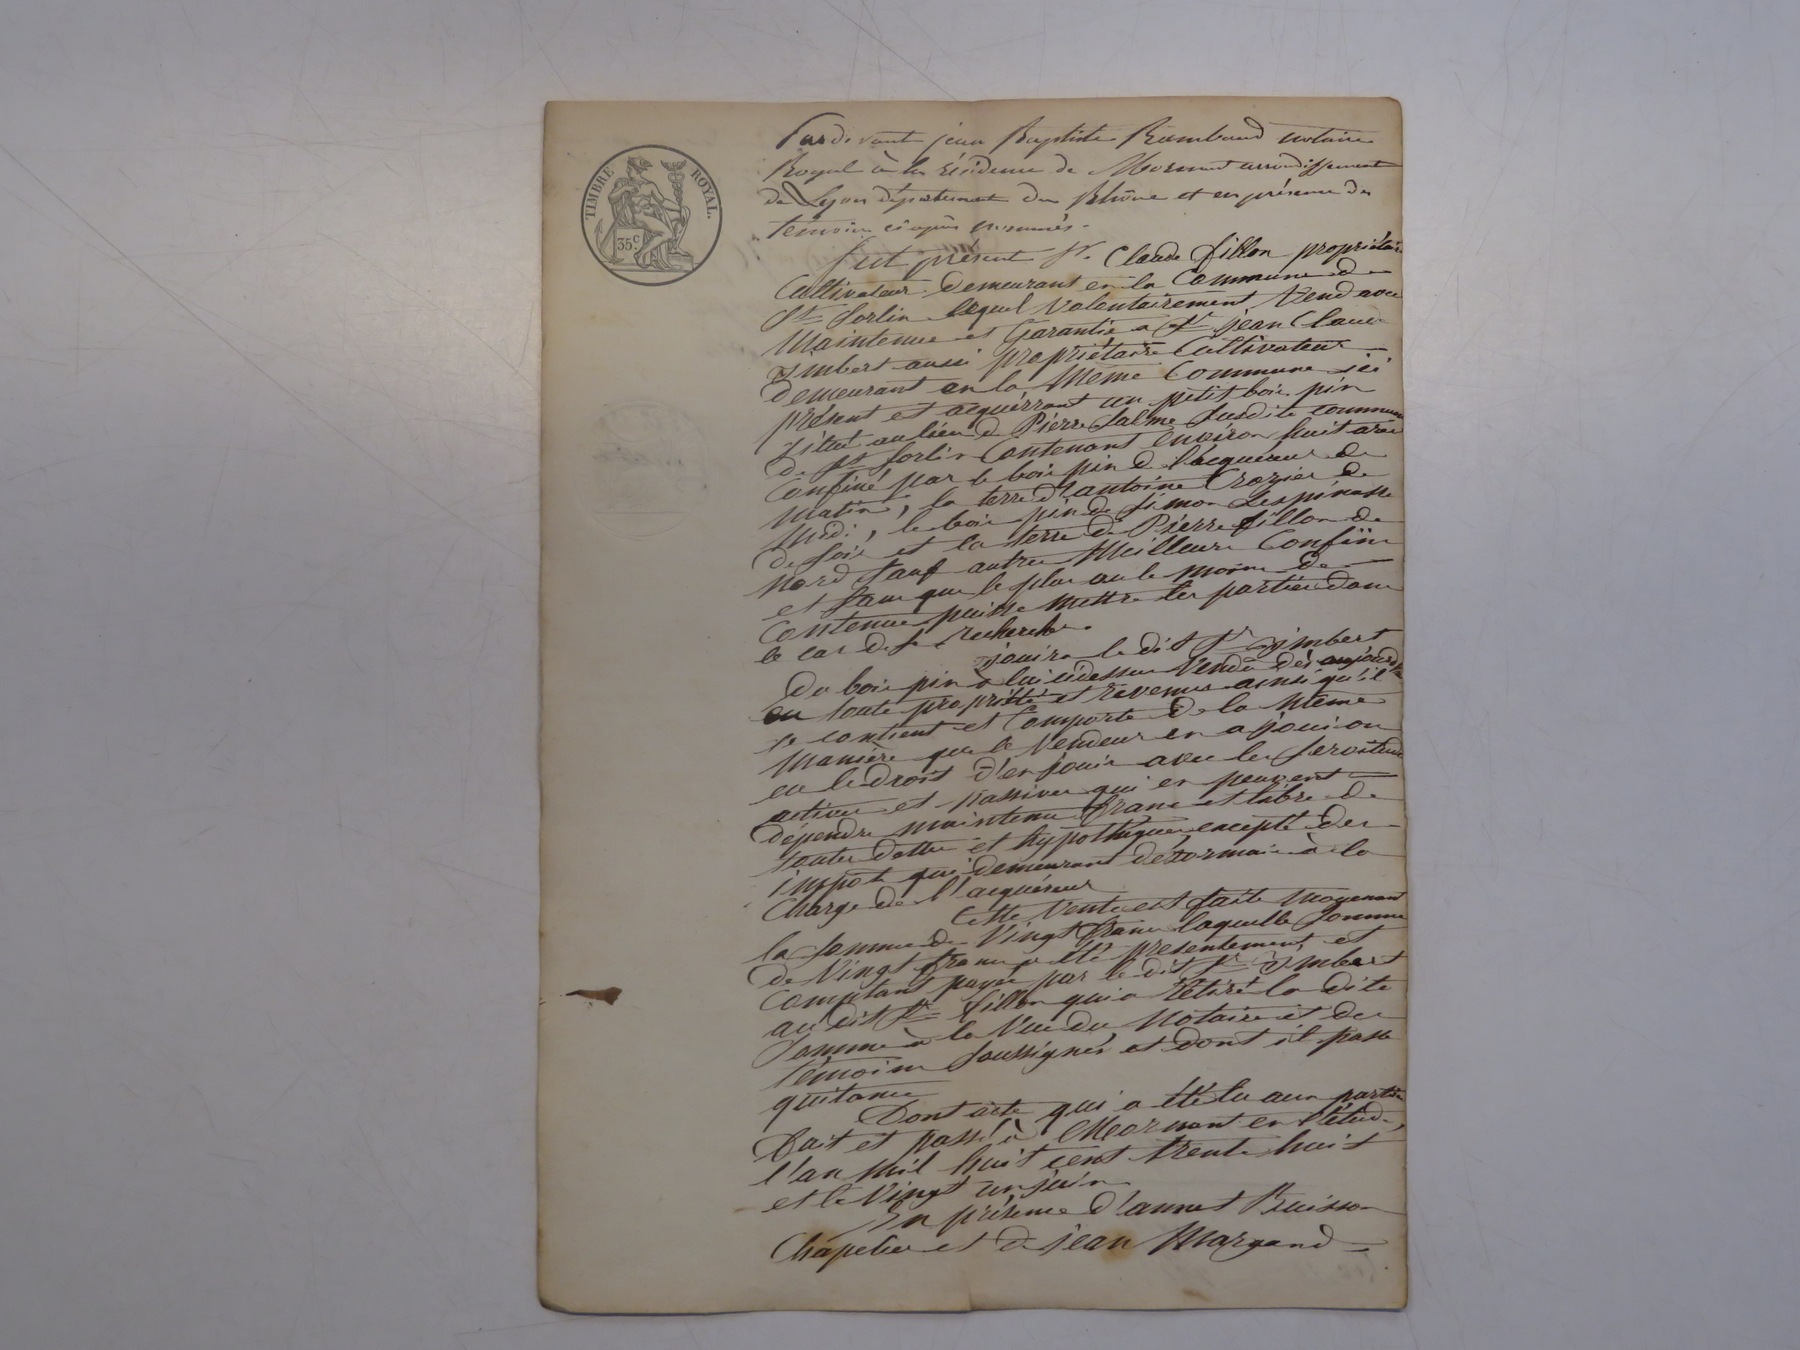 TIMBRE ROYAL.
35c.
Pardevant jean Baptiste Rambaud notaire
Royal à la résidence de Mornant arrondissement
de Lyon département du Rhône et en présence des
témoins ci après nommés.
fut présent Sr. Claude fillon propriétaire
Cultivateur demeurant en la Commune de
St Sorlin lequel Volontairement Vend avec
Maintenue et Garantie a Sr jean Claude
Imbert aussi propriétaire Cultivateur
demeurant en la Même Commune ici
présent et acquérrant un petit bois pin
situé au lieu de Pierre Salme Susdite commune
de St Sorlin Contenant environ huit ares
Confiné par le bois pin de l'acquéreur de
matin, la terre d'antoine Crozier de
midi, le bois pin de Simon Lespinasse
de soir et la terre de Pierre fillon de
Nord Sauf autres Meilleurs Confins
et Sans que le plus ou le moins de
Contenue puisse Mettre les parties dans
le cas de se rechercher.
jouira le dit Sr Imbert
du bois pin à lui cidessus Vendu dès aujourd'hui
en toute propriété et revenus ainsi qu'il
se contient et Comporte de la Même
Manière que le Vendeur en a joui ou
eu le droit d'en jouir avec les Servitudes
actives et passives qui en peuvent
dépendre maintenu franc et libre de
toutes dettes et hypothèques excepté des
impots qui demeurent désormais à la
Charge de l'acquéreur
Cette Vente est faite Moyenant
la Somme de Vingt francs laquelle Somme
de Vingt francs a été présentement et
Comptant payée par le dit Sr Imbert
au dit Sr fillon qui a retiré la dite
Somme à la Vue du Notaire et des
témoins Soussignés et dont il passe
quitance
Dont acte qui a été lu aux parties
Fait et passé à Mornant en l'étude,
l'an Mil huit cent trente huit
et le Vingt un juin
En présence d'annet Buisson
Chapelier et de jean Margand